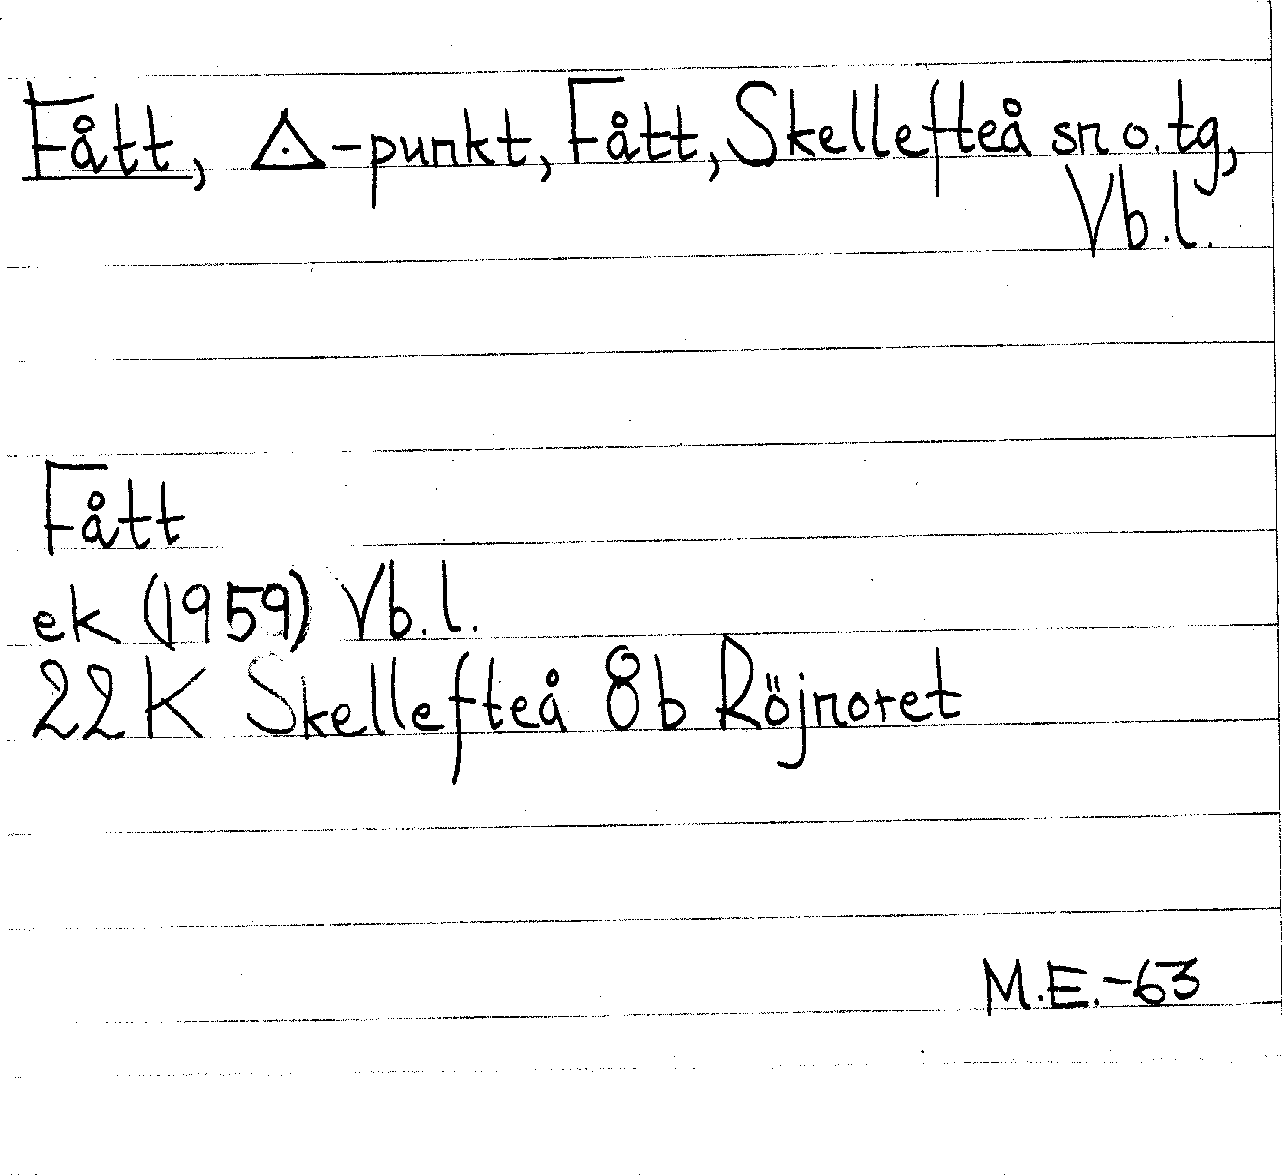 Fått, △-punkt, Fått, Skellefteå sn o. tg,
Vb.l.
Fått
ek (1959) Vb.l.
22K Skellefteå 8b Röjnoret
M.E.-63